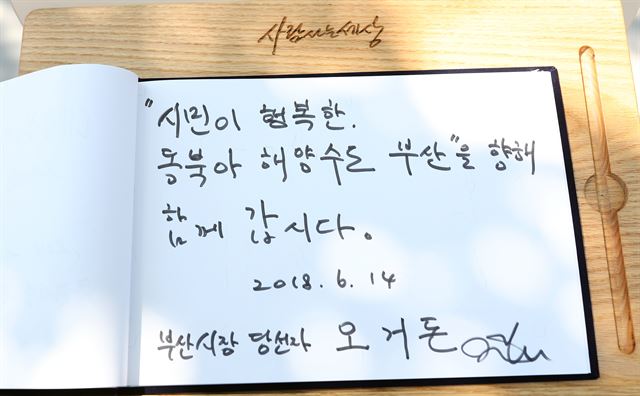 사람사는세상
"시민이 행복한.
동북아 해양수도 부산"을 향해
함께 갑시다.
2018. 6. 14
부산시장 당선자 오거돈